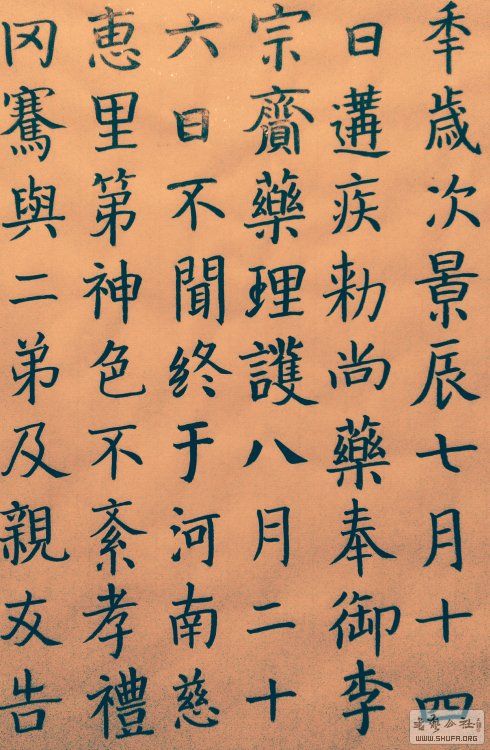 秊歲次景辰七月十四
日遘疾勅尚藥奉御李
宗齎藥理護八月二十
六日不聞終于河南慈
惠里第神色不紊孝禮
冈騫與二弟及親友告
书艺公社
WWW.SHUFA.ORG